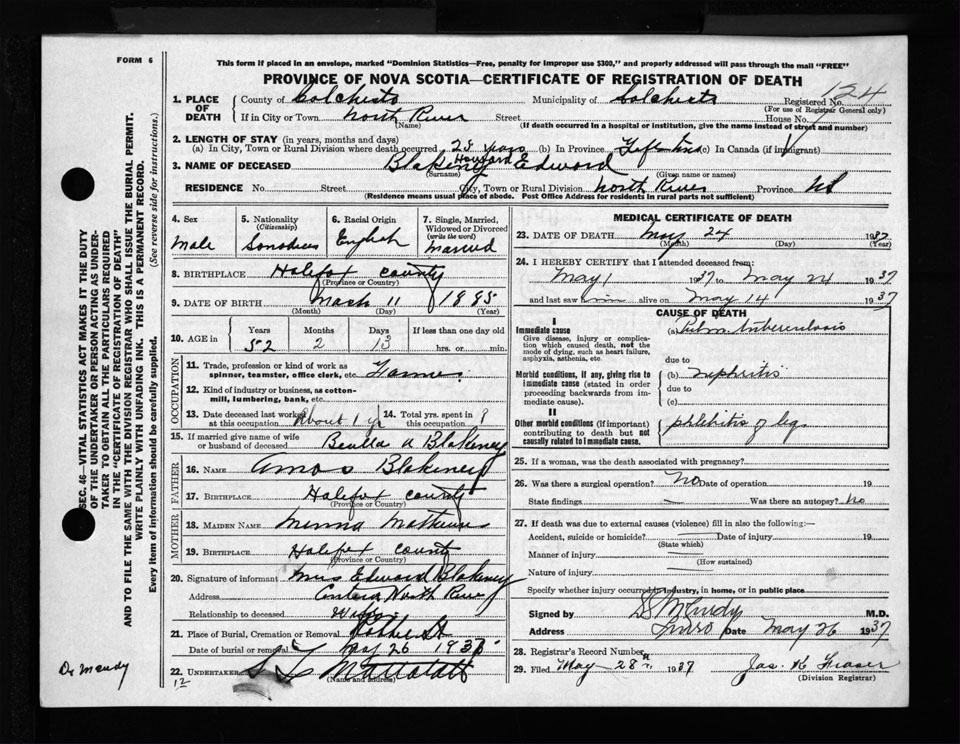 FORM 6
This form if placed in an envelope, marked "Dominion Statistics—Free, penalty for improper use $300," and properly addressed will pass through the mail "FREE"
PROVINCE OF NOVA SCOTIA—CERTIFICATE OF REGISTRATION OF DEATH
124
1. PLACE OF DEATH County of Colchester Municipality of Colchester Registered No.
(For use of Registrar General only)
If in City or Town North River Street House No.
(Name) (If death occurred in a hospital or institution, give the name instead of street and number)
2. LENGTH OF STAY (in years, months and days)
(a) In City, Town or Rural Division where death occurred 28 years (b) In Province Lifetime (c) In Canada (if immigrant)
Howard E
3. NAME OF DECEASED Blakeney Edward
(Surname) (Given name or names)
RESIDENCE No. Street City, Town or Rural Division North River Province NS
(Residence means usual place of abode. Post Office Address for residents in rural parts not sufficient)
4. Sex 5. Nationality (Citizenship) 6. Racial Origin 7. Single, Married, Widowed or Divorced (write the word)
Male Canadian English Married
8. BIRTHPLACE Halifax County
(Province or Country)
9. DATE OF BIRTH March 11 1885
(Month) (Day) (Year)
10. AGE in Years Months Days If less than one day old
52 2 13 hrs. or min.
OCCUPATION
11. Trade, profession or kind of work as spinner, teamster, office clerk, etc. Farmer
12. Kind of industry or business, as cotton-mill, lumbering, bank, etc.
13. Date deceased last worked at this occupation About 1 yr 14. Total yrs. spent in this occupation
15. If married give name of wife or husband of deceased Beulla A Blakeney
FATHER
16. NAME Amos Blakeney
17. BIRTHPLACE Halifax County
(Province or Country)
MOTHER
18. MAIDEN NAME Minna
19. BIRTHPLACE Halifax County
(Province or Country)
20. Signature of informant Mrs Edward Blakeney
Address Central North River
Relationship to deceased Wife
21. Place of Burial, Cremation or Removal
Date of burial or removal May 26 193
22. UNDERTAKER
(Name and address)
MEDICAL CERTIFICATE OF DEATH
23. DATE OF DEATH May 24 1937
(Month) (Day) (Year)
24. I HEREBY CERTIFY that I attended deceased from:
May 1 1937 to May 24 1937
and last saw him alive on May 14 1937
CAUSE OF DEATH
I
Immediate cause (a) Pulm. tuberculosis
Give disease, injury or complication which caused death, not the mode of dying, such as heart failure, asphyxia, asthenia, etc. due to
Morbid conditions, if any, giving rise to immediate cause (stated in order proceeding backwards from immediate cause). (b) nephritis
due to
(c)
II
Other morbid conditions (if important) contributing to death but not causally related to immediate cause. phlebitis of leg
25. If a woman, was the death associated with pregnancy?
26. Was there a surgical operation? No Date of operation 19
State findings — Was there an autopsy? No
27. If death was due to external causes (violence) fill in also the following:—
Accident, suicide or homicide? Date of injury 19
(State which)
Manner of injury
(How sustained)
Nature of injury
Specify whether injury occurred in industry, in home, or in public place
Signed by M.D.
Address Truro Date May 26 1937
28. Registrar's Record Number
29. Filed May 28 1937 Jas. K Fraser
(Division Registrar)
SEC. 46—VITAL STATISTICS ACT MAKES IT THE DUTY
OF THE UNDERTAKER OR PERSON ACTING AS UNDER-
TAKER TO OBTAIN ALL THE PARTICULARS REQUIRED
IN THE "CERTIFICATE OF REGISTRATION OF DEATH"
AND TO FILE THE SAME WITH THE DIVISION REGISTRAR WHO SHALL ISSUE THE BURIAL PERMIT.
WRITE PLAINLY WITH UNFADING INK. THIS IS A PERMANENT RECORD.
Every item of information should be carefully supplied. (See reverse side for instructions.)
12